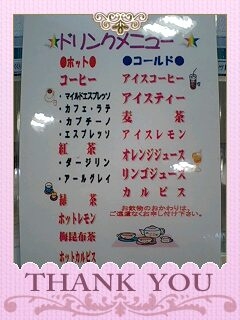 ドリンクメニュー
●ホット●
コーヒー
・マイルドエスプレッソ
・カフェ・ラテ
・カプチーノ
・エスプレッソ
紅茶
・ダージリン
・アールグレイ
緑茶
ホットレモン
梅昆布茶
ホットカルピス
●コールド●
アイスコーヒー
アイスティー
麦茶
アイスレモン
オレンジジュース
リンゴジュース
カルピス
お飲物のおかわりは、
ご遠慮なくお申し付け下さい。
THANK YOU